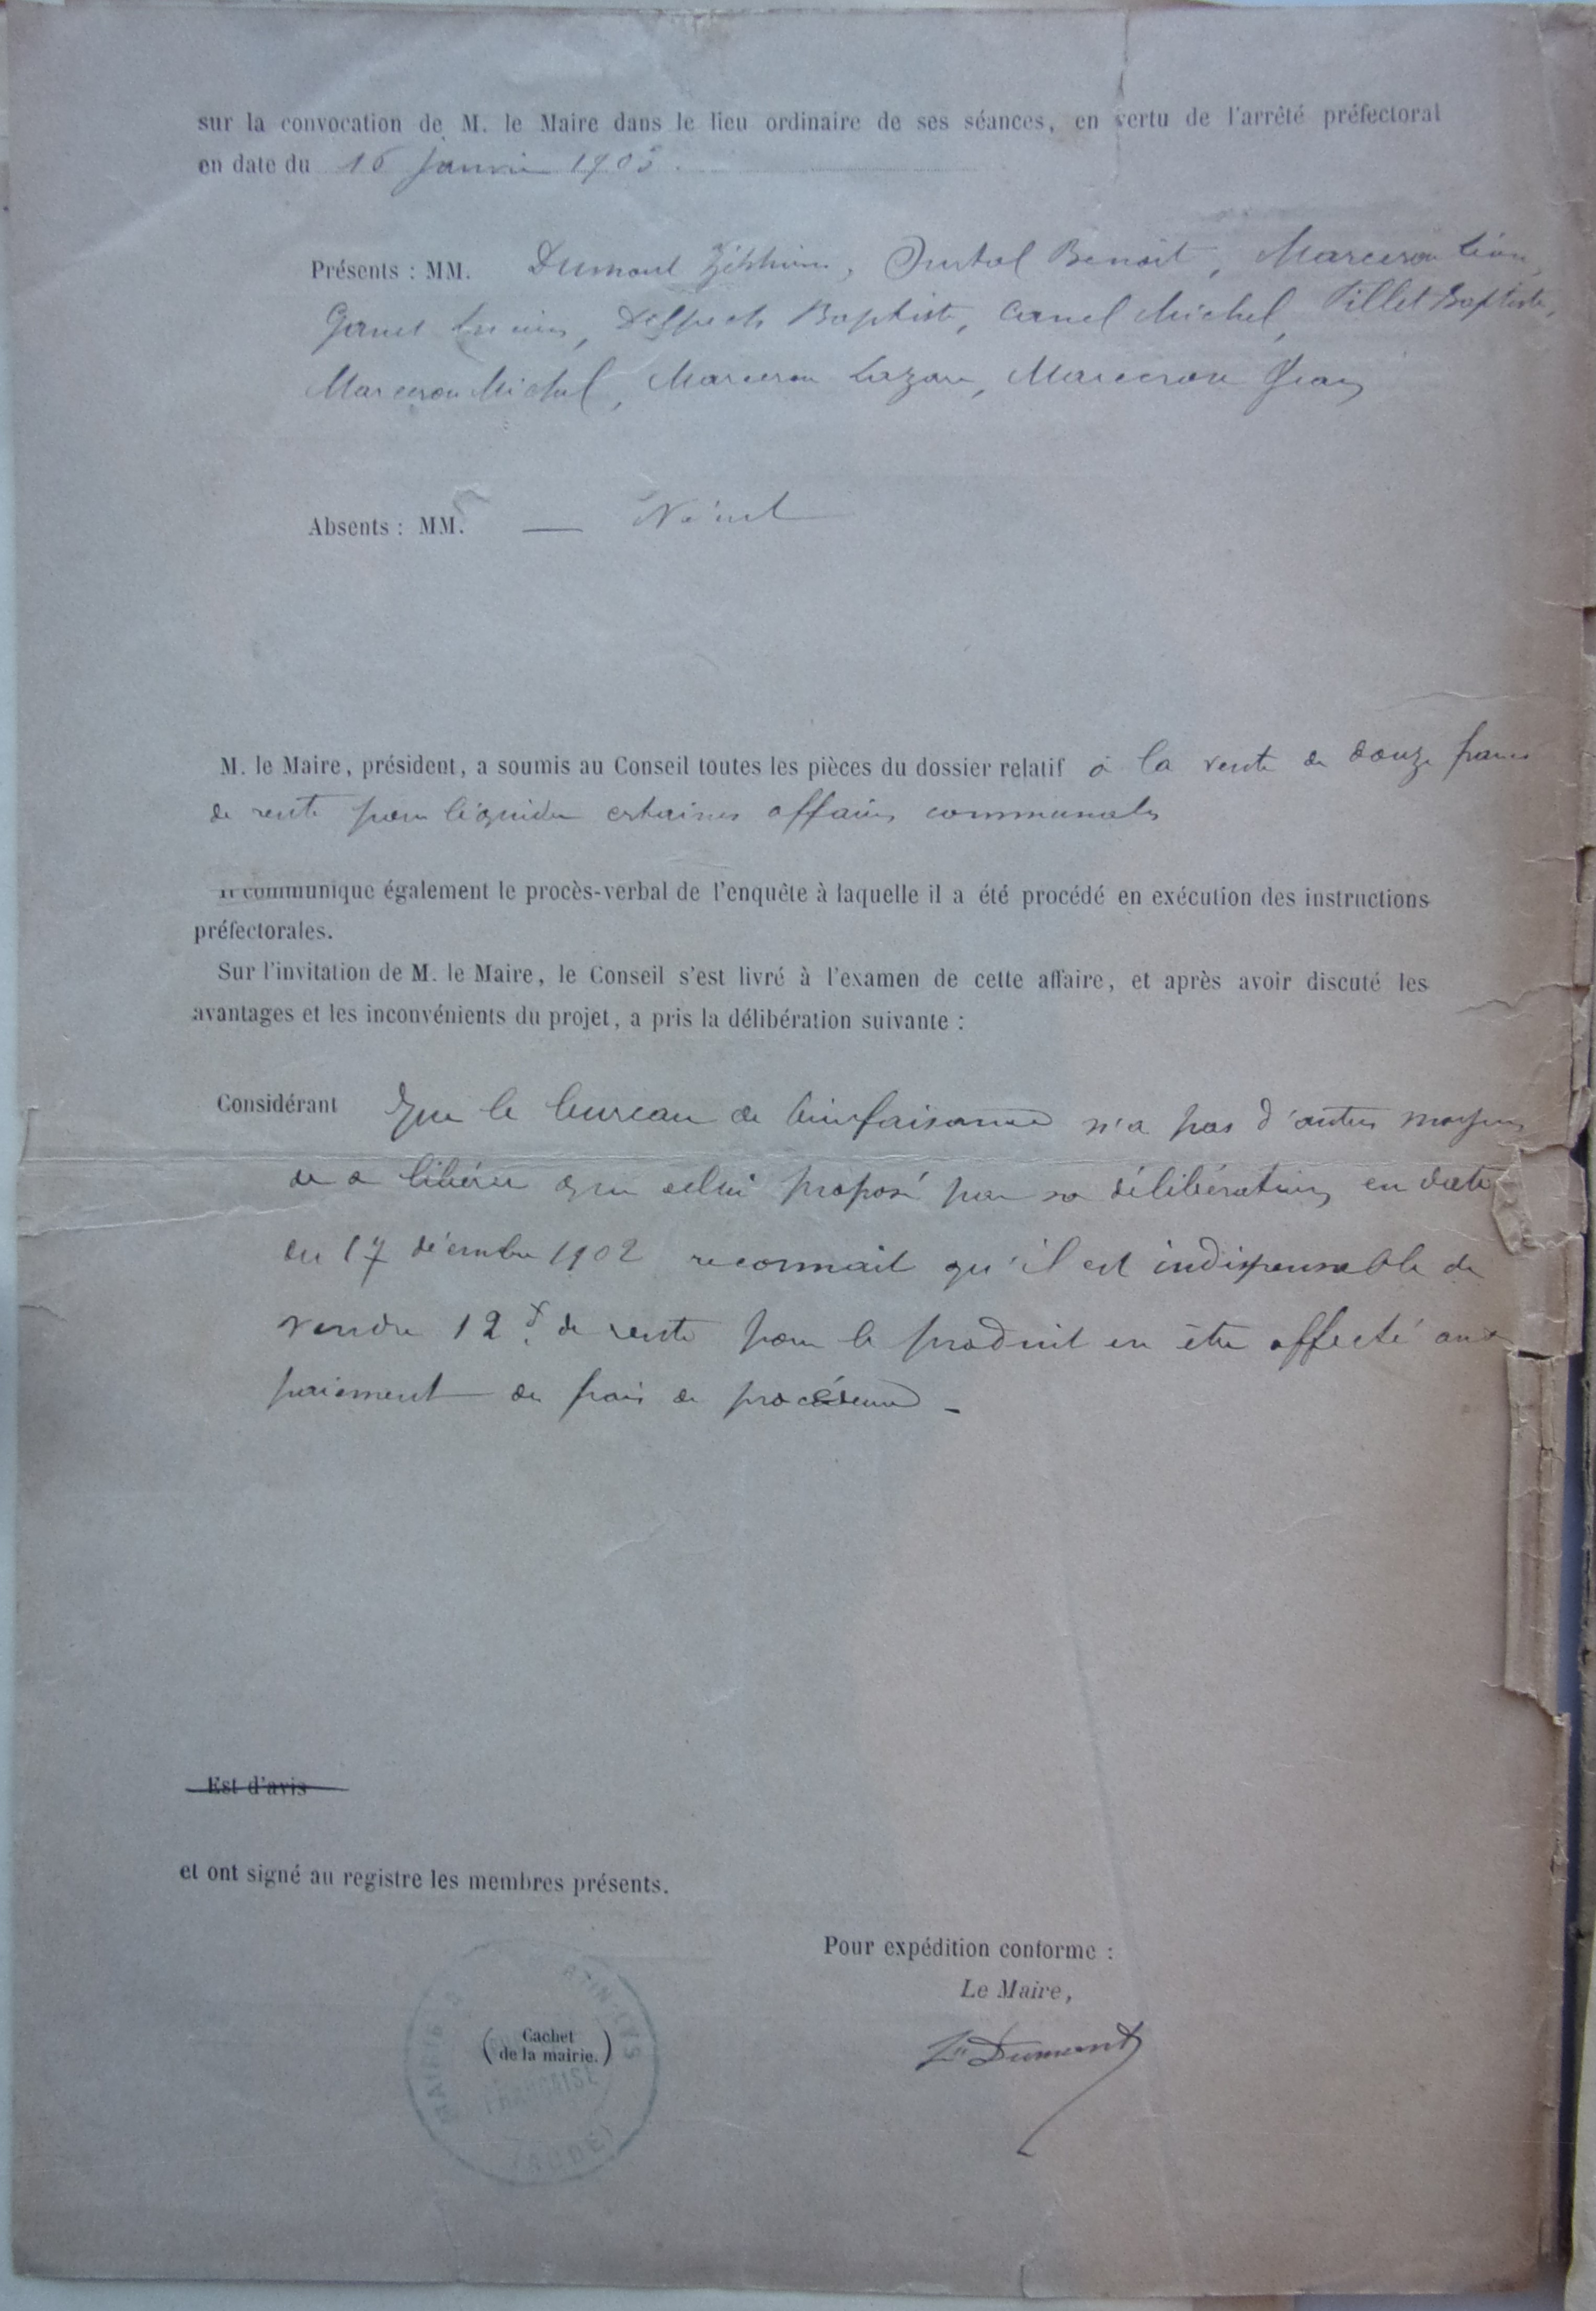 sur la convocation de M. le Maire dans le lieu ordinaire de ses séances, en vertu de l'arrêté préfectoral
en date du 16 janvier 1903.
Présents : MM. Dumont Zéphirin, Benoit, Marceron Léon,
Delpech Baptiste, Canel Michel, Pillet Baptiste,
Marceron Michel, Marceron Lazare, Marceron Jean
Absents : MM. — Néant
M. le Maire, président, a soumis au Conseil toutes les pièces du dossier relatif à la vente de douze francs
de rente pour liquider certaines affaires communales
Il communique également le procès-verbal de l'enquête à laquelle il a été procédé en exécution des instructions
préfectorales.
Sur l'invitation de M. le Maire, le Conseil s'est livré à l'examen de cette affaire, et après avoir discuté les
avantages et les inconvénients du projet, a pris la délibération suivante :
Considérant Que le bureau de bienfaisance n'a pas d'autres moyens
de se libérer que celui proposé par sa délibération en date
du 17 décembre 1902 reconnait qu'il est indispensable de
vendre 12 f. de rente pour le produit en être affecté au
paiement de frais de procédure -
Est d'avis
et ont signé au registre les membres présents.
Pour expédition conforme :
Le Maire,
Dumont
(Cachet
de la mairie.)
MAIRIE
FRANÇAISE
(AUDE)